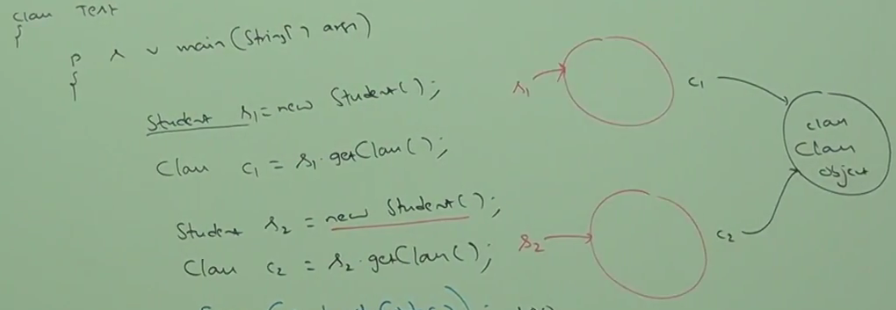 class Test
{
p s v main(String[] args)
{
Student s1 = new Student();
Class c1 = s1.getClass();
Student s2 = new Student();
Class c2 = s2.getClass();
s1
c1
class
Class
object
s2
c2